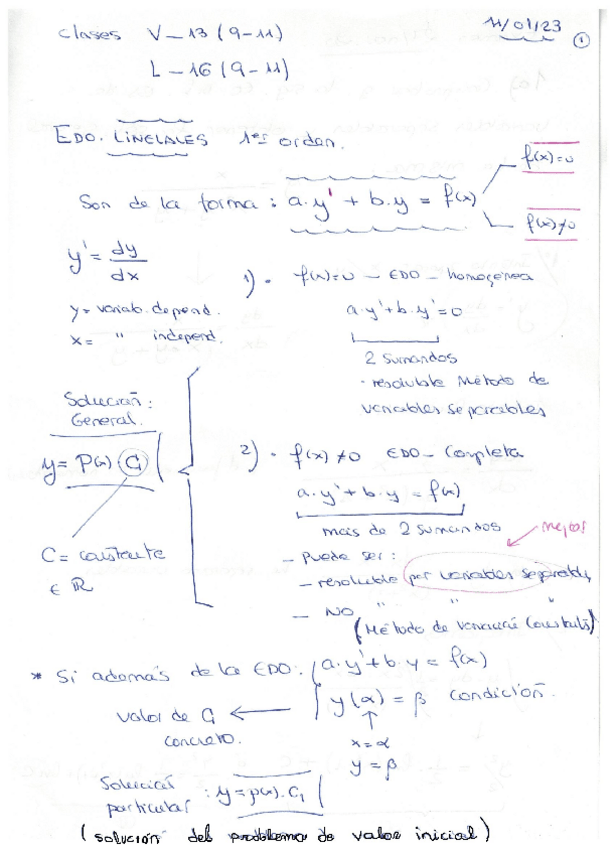 clases V_13 (9-11)
11/01/23
1
L_16 (9-11)
EDO. LINELALES 1er orden.
Son de la forma : a.y' + b.y = f(x)
f(x)=0
f(x)≠0
y' = dy/dx
y = variab. depend.
x = " independ.
1) • f(x)=0 _ EDO _ homogénea
a.y'+b.y'=0
2 sumandos
- resoluble Método de
variables separables
Solución:
General.
y = P(x).C
C = constante
∈ R
2) • f(x) ≠0 EDO_ Completa
a.y'+b.y = f(x)
más de 2 sumandos
mejor
- Puede ser :
- resoluble (por variables separables)
- NO " " "
(Método de variación Constants)
* Si además de la EDO: a.y'+b.y = f(x)
y(α) = β condición.
valor de C
concreto.
x=α
y=β
Solución
particular : y = p(x).C1
(solución del problema de valor inicial)